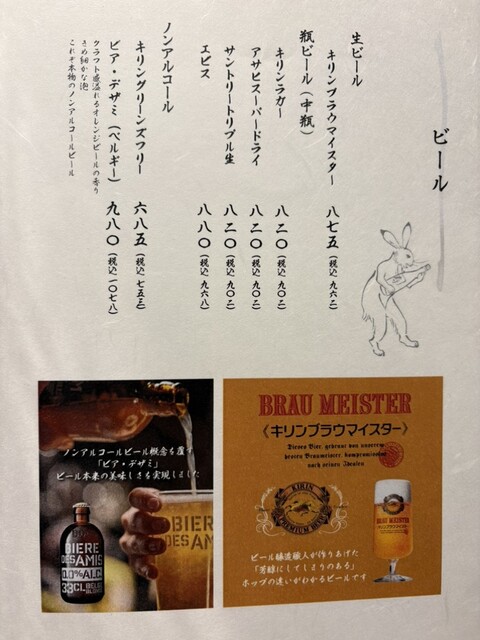 ビール
生ビール
キリンブラウマイスター 八七五(税込 九六二)
瓶ビール(中瓶)
キリンラガー 八二〇(税込 九〇二)
アサヒスーパードライ 八二〇(税込 九〇二)
サントリートリプル生 八二〇(税込 九〇二)
エビス 八八〇(税込 九六八)
ノンアルコール
キリングリーンズフリー 六八五(税込 七五三)
ビア・デザミ(ベルギー) 九八〇(税込 一〇七八)
クラフト感溢れるオレンジピールの香り
きめ細かな泡
これぞ本物のノンアルコールビール
ノンアルコールビール概念を覆す
「ビア・デザミ」
ビール本来の美味しさを実現しました
BIERE
DES AMIS
BIERE
DES AMIS
0.0%ALC.
33CL
BRAU MEISTER
《キリンブラウマイスター》
Dieses Bier, gebraut von unserem
besten Braumeister, kompromisslos
nach seinen Idealen
KIRIN
PREMIUM BEER
BRAU MEISTER
ビール醸造職人が作りあげた
「芳醇にしてしまりのある」
ホップの違いがわかるビールです